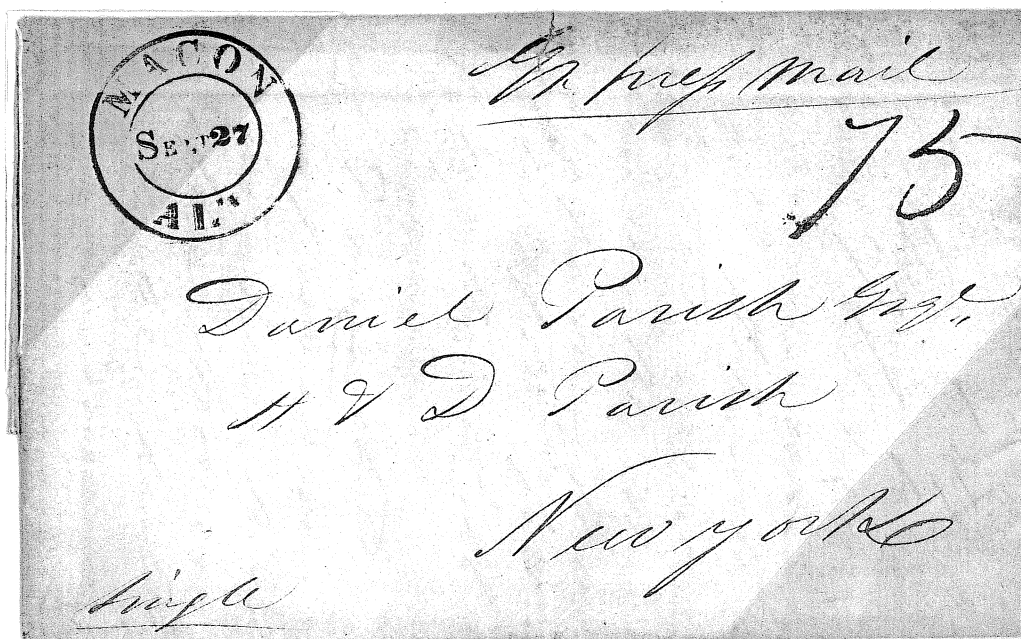 MACON
SEPT 27
ALA
Express mail
75
Daniel Parish Esqr.
H & D Parish
New York
Single